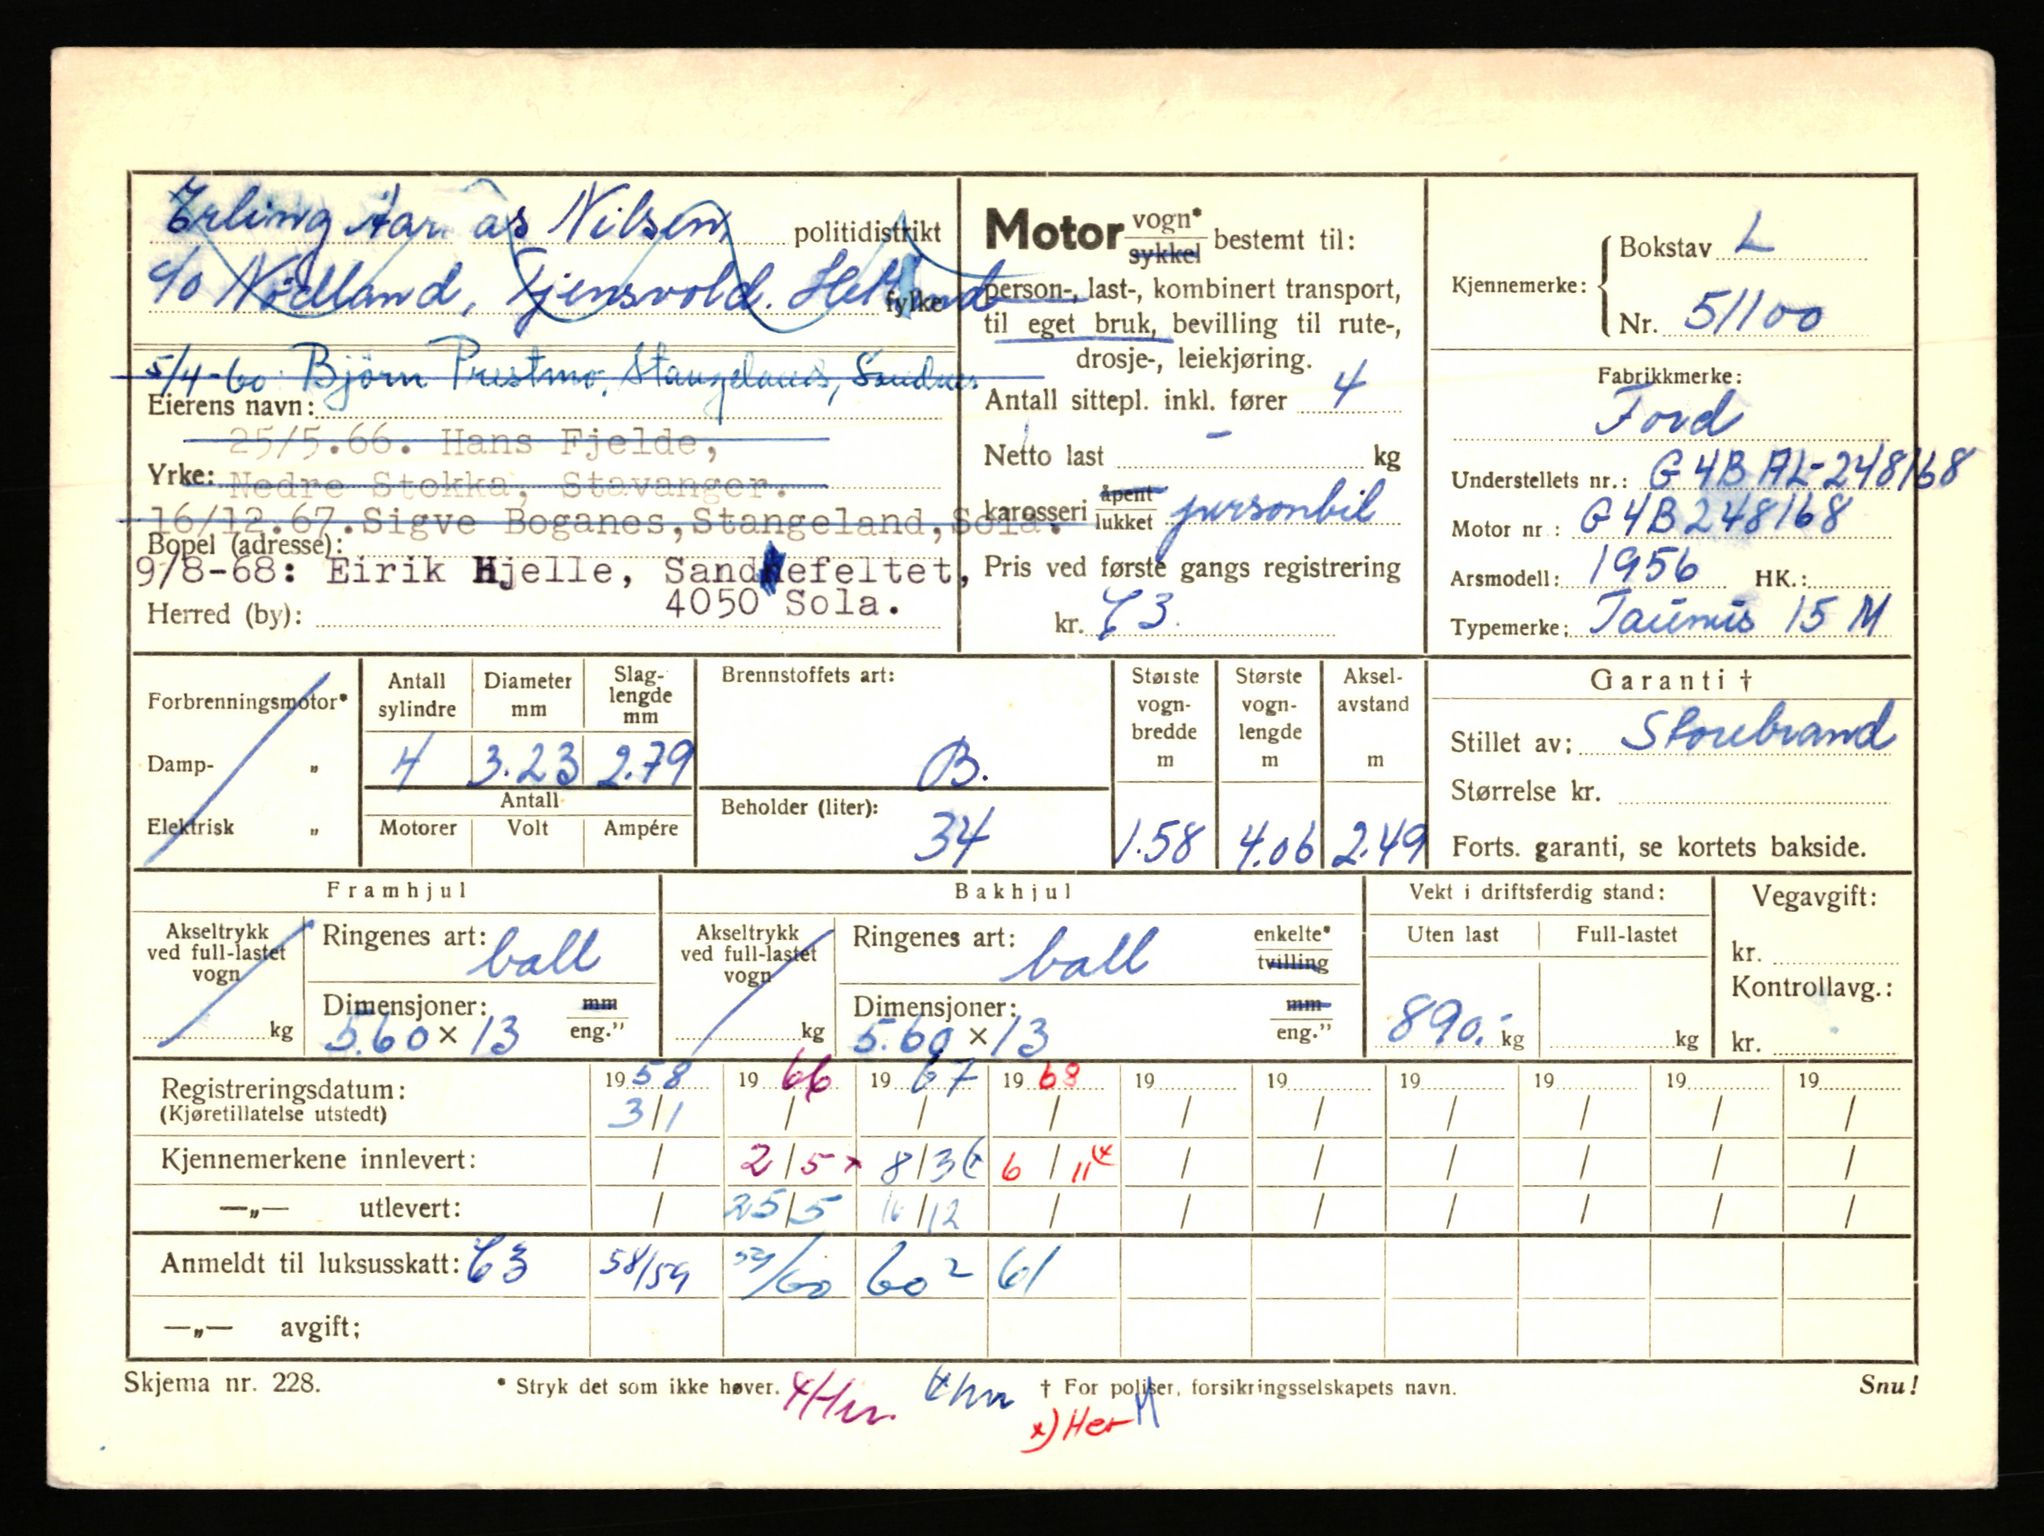 Erling Nilsen politidistrikt
c/o Nødland, Tjensvold. Hetland fylke
5/4-60 Björn Prestmo, Stangeland, Sandnes
Eierens navn:
25/5.66. Hans Fjelde,
Yrke: Nedre Stokka, Stavanger.
16/12.67. Sigve Boganes, Stangeland, Sola.
Bopel (adresse):
9/8-68: Eirik Hjelle, Sandefeltet,
4050 Sola.
Herred (by):
Motor vogn* sykkel bestemt til:
person-, last-, kombinert transport,
til eget bruk, bevilling til rute-,
drosje-, leiekjøring.
Antall sittepl. inkl. fører 4
Netto last - kg
karosseri åpent lukket personbil
Pris ved første gangs registrering
kr. C3.
Kjennemerke: Bokstav L
Nr. 51100
Fabrikkmerke:
Ford
Understellets nr.: G4BAL-248168
Motor nr: G4B248168
Arsmodell: 1956 HK.:
Typemerke: Taunus 15 M
Forbrenningsmotor*
Damp- „
Elektrisk „
Antall sylindre 4
Diameter mm 3.23
Slag-lengde mm 2.79
Antall
Motorer Volt Ampére
Brennstoffets art:
B.
Beholder (liter):
34
Største vogn-bredde m 1.58
Største vogn-lengde m 4.06
Aksel-avstand m 2.49
Garanti †
Stillet av: Storebrand
Størrelse kr.
Forts. garanti, se kortets bakside.
Framhjul
Akseltrykk ved full-lastet vogn kg
Ringenes art: ball
Dimensjoner: mm
5.60 × 13 eng.”
Bakhjul
Akseltrykk ved full-lastet vogn kg
Ringenes art: ball enkelte* tvilling
Dimensjoner: mm
5.60 × 13 eng.”
Vekt i driftsferdig stand:
Uten last Full-lastet
890.- kg kg
Vegavgift:
kr.
Kontrollavg.:
kr.
Registreringsdatum: 1958 1966 1967 1968 19 19 19 19 19 19
(Kjøretillatelse utstedt) 3/1 / / / / / / / / /
Kjennemerkene innlevert: / 2/5 x 8/3 x 6/11 x / / / / / /
—„— utlevert: / 25/5 16/12 / / / / / / /
Anmeldt til luksusskatt: C3 58/59 59/60 60 2 61
—„— avgift;
Skjema nr. 228. * Stryk det som ikke høver. † For poliser, forsikringsselskapets navn. Snu!
x) Her